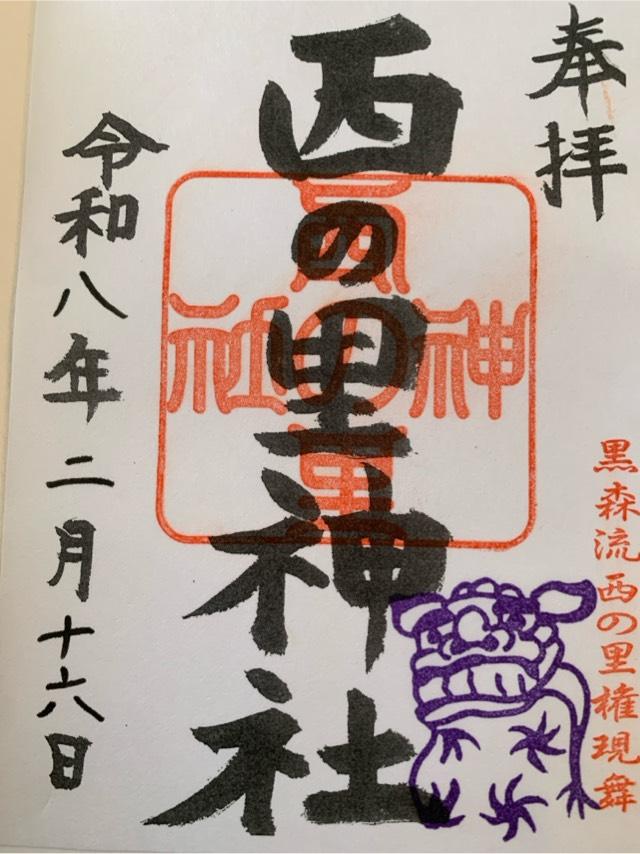 奉拝
黒森流 西の里権現舞
西の里神社
西の里神社
令和八年二月十六日